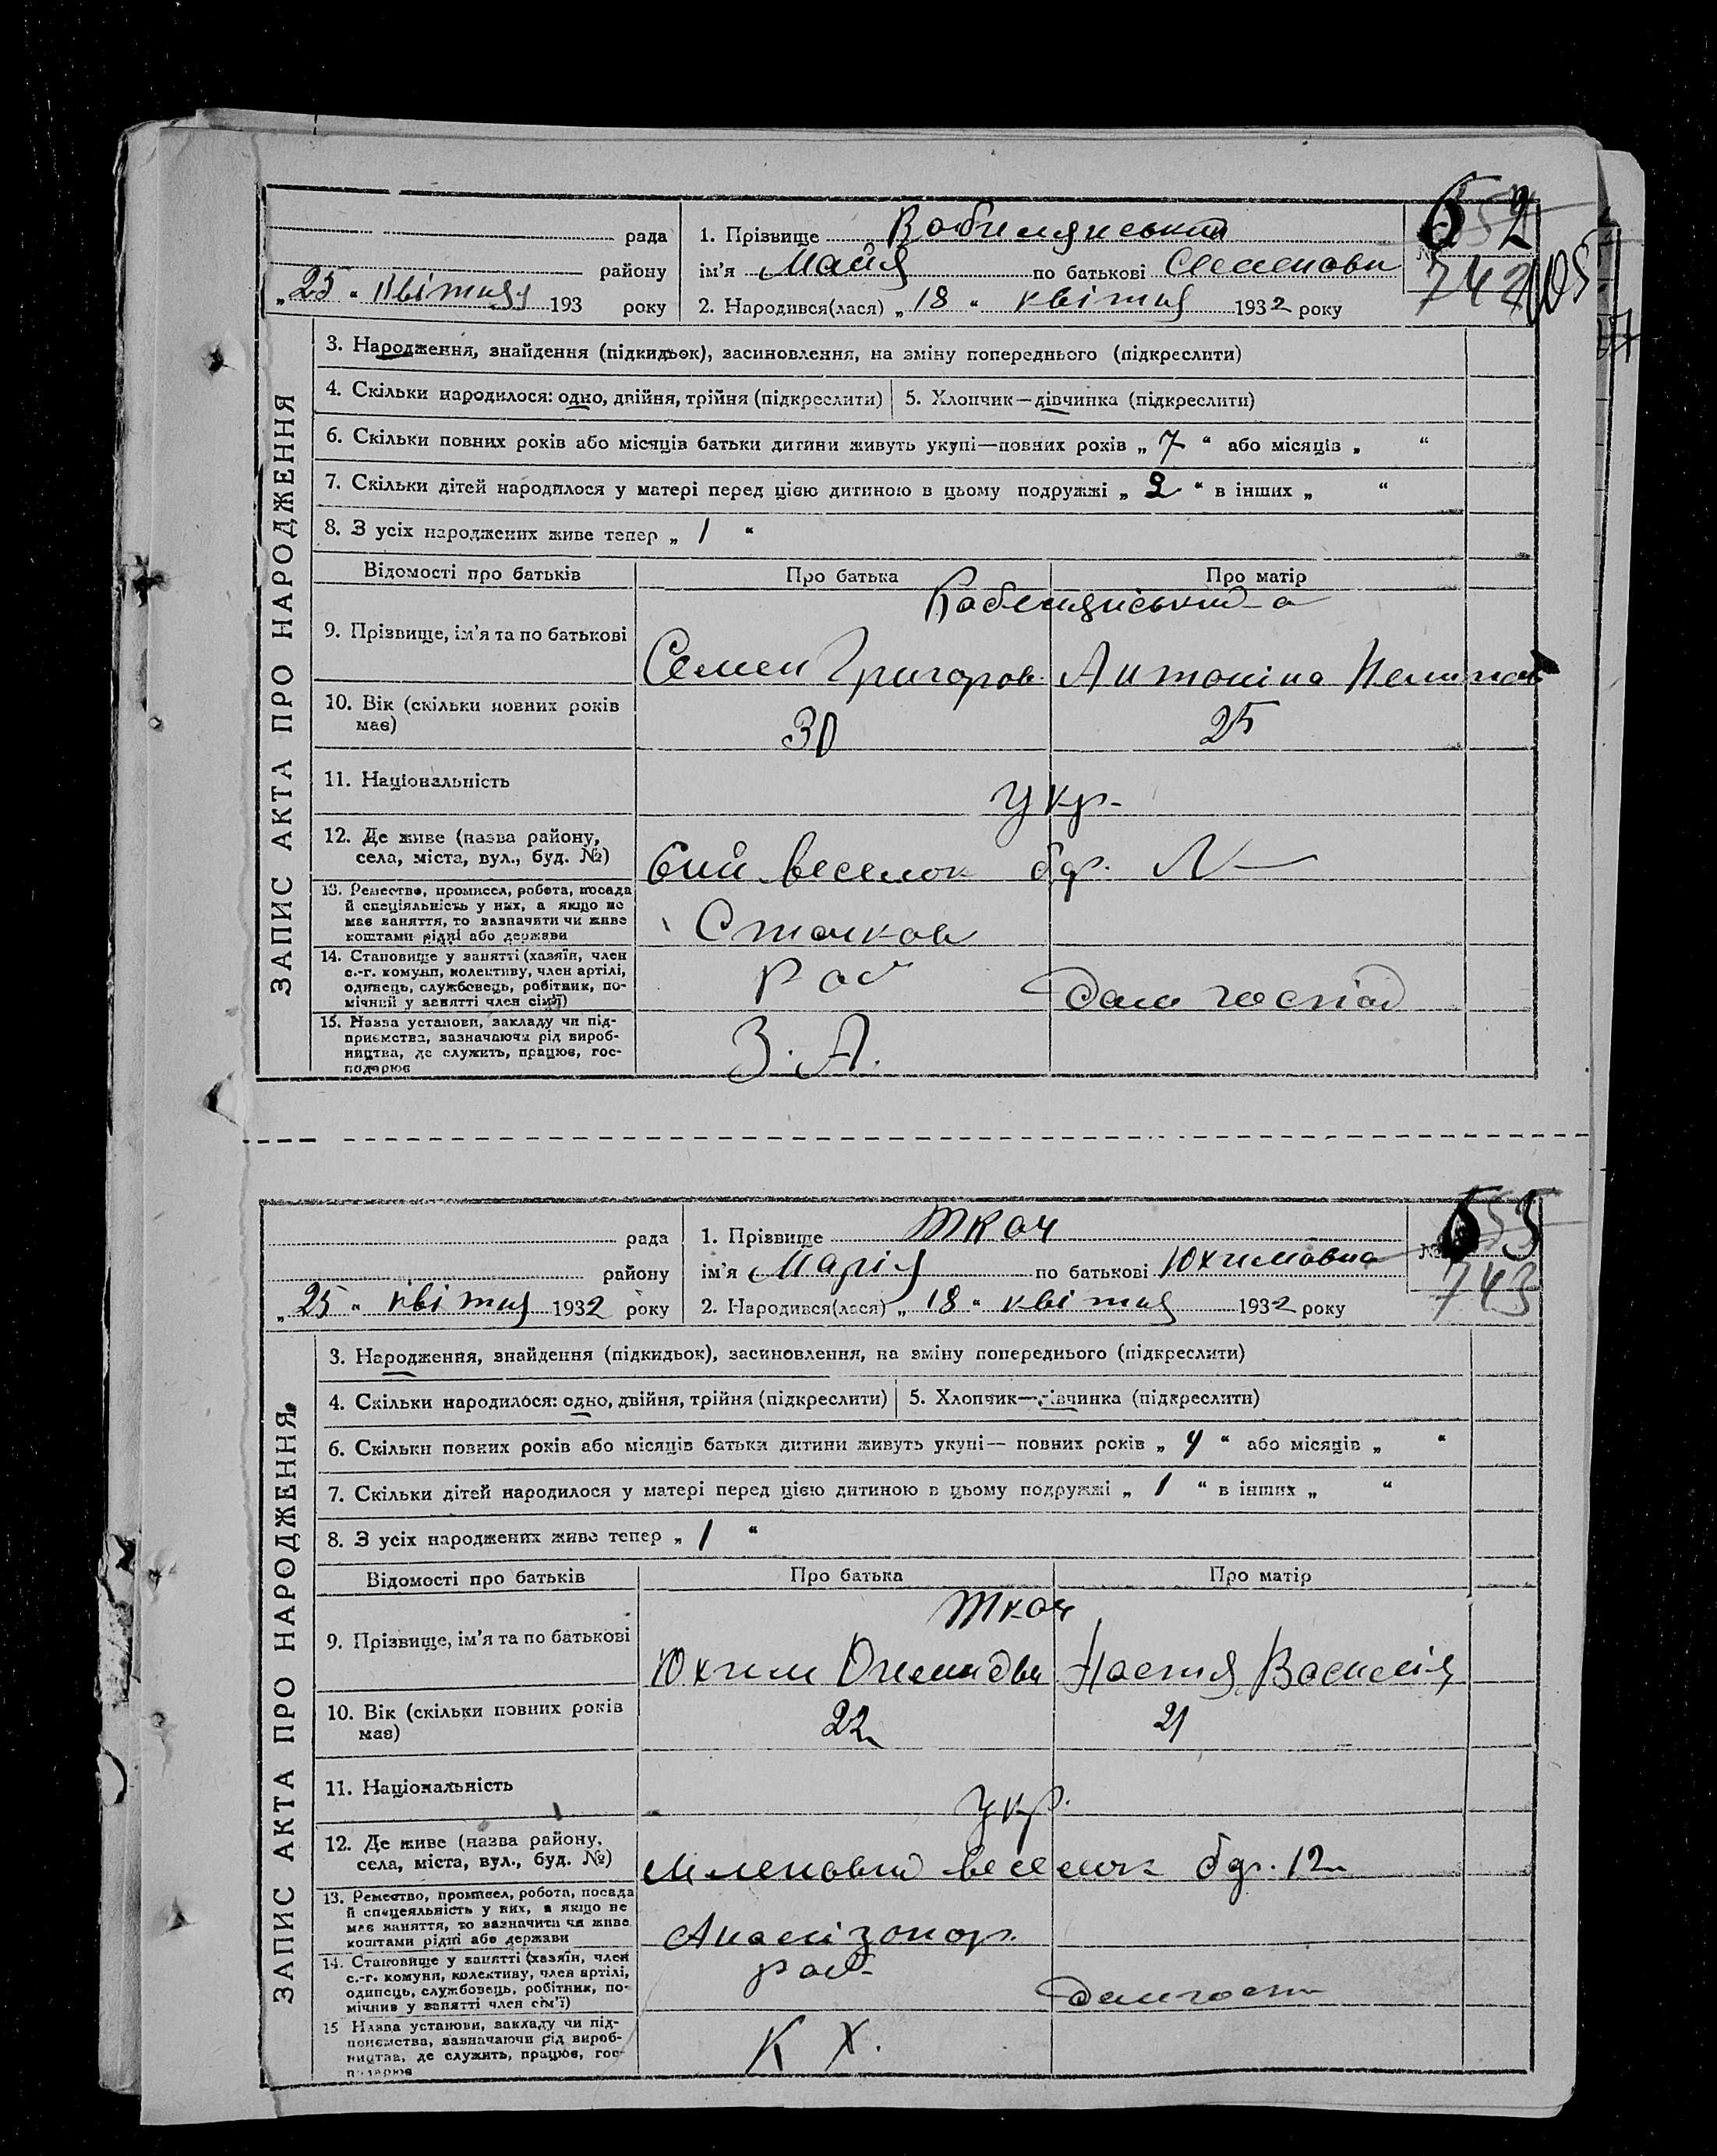 рада
району
„25“ квітня 193 року
1. Прізвище
ім'я Майя по батькові Семеновн
2. Народився(лася) „18“ квітня 1932 року
742
ЗАПИС АКТА ПРО НАРОДЖЕННЯ
3. Народження, знайдення (підкидьок), засиновлення, на зміну попереднього (підкреслити)
4. Скільки народилося: одно, двійня, трійня (підкреслити) 5. Хлопчик—дівчинка (підкреслити)
6. Скільки повних років або місяців батьки дитини живуть укупі—повних років „7“ або місяців „ “
7. Скільки дітей народилося у матері перед цією дитиною в цьому подружжі „2“ в інших „ “
8. З усіх народжених живе тепер „1“
Відомості про батьків Про батька Про матір
9. Прізвище, ім'я та по батькові
Семен Григоров. Антоніна
10. Вік (скільки повних років має)
30 25
11. Національність
укр.
12. Де живе (назва району, села, міста, вул., буд. №)
бді. N —
13. Ремество, промисел, робота, посада й спеціяльність у них, а якщо не має заняття, то зазначити чи живе коштами рідні або держави
14. Становище у занятті (хазяїн, член с.-г. комуни, колективу, член артілі, одинець, службовець, робітник, помічний у занятті член сім'ї)
роб дом господ
15. Назва установи, закладу чи підприємства, зазначаючи рід виробництва, де служить, працює, господарює
З. А.
рада
району
„25“ квітня 1932 року
1. Прізвище Ткач
ім'я Марія по батькові Юхимовна
2. Народився(лася) „18“ квітня 1932 року
743
ЗАПИС АКТА ПРО НАРОДЖЕННЯ
3. Народження, знайдення (підкидьок), засиновлення, на зміну попереднього (підкреслити)
4. Скільки народилося: одно, двійня, трійня (підкреслити) 5. Хлопчик—дівчинка (підкреслити)
6. Скільки повних років або місяців батьки дитини живуть укупі— повних років „4“ або місяців „ “
7. Скільки дітей народилося у матері перед цією дитиною в цьому подружжі „1“ в інших „ “
8. З усіх народжених живе тепер „1“
Відомості про батьків Про батька Про матір
Ткач
9. Прізвище, ім'я та по батькові
Юхим Настя Василів
10. Вік (скільки повних років має)
22 21
11. Національність
укр.
12. Де живе (назва району, села, міста, вул., буд. №)
бді. 12
13. Ремество, промисел, робота, посада й спецеяльність у них, а якщо не має заняття, то зазначити чи живе коштами рідні або держави
14. Становище у занятті (хазяїн, член с.-г. комуни, колективу, член артілі, одинець, службовець, робітник, помічнив у занятті член сім'ї)
роб.
15 Назва установи, закладу чи підприємства, зазначаючи рід виробництва, де служить, працює, господарює
К Х.